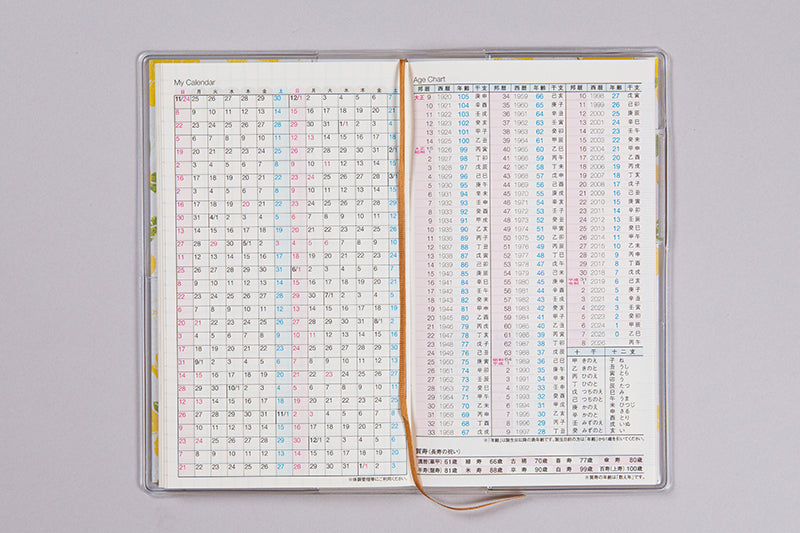 My Calendar
日 月 火 水 木 金 土 日 月 火 水 木 金
11/24 25 26 27 28 29 30 12/1 2 3 4 5 6
8 9 10 11 12 13 14 15 16 17 18 19 20
22 23 24 25 26 27 28 29 30 31 1/1 2 3
5 6 7 8 9 10 11 12 13 14 15 16 17
19 20 21 22 23 24 25 26 27 28 29 30 31 2/1
2 3 4 5 6 7 8 9 10 11 12 13 14
16 17 18 19 20 21 22 23 24 25 26 27 28 3/1
2 3 4 5 6 7 8 9 10 11 12 13 14
16 17 18 19 20 21 22 23 24 25 26 27 28
30 31 4/1 2 3 4 5 6 7 8 9 10 11
13 14 15 16 17 18 19 20 21 22 23 24 25
27 28 29 30 5/1 2 3 4 5 6 7 8 9
11 12 13 14 15 16 17 18 19 20 21 22 23
25 26 27 28 29 30 31 6/1 2 3 4 5 6
8 9 10 11 12 13 14 15 16 17 18 19 20
22 23 24 25 26 27 28 29 30 7/1 2 3 4
6 7 8 9 10 11 12 13 14 15 16 17 18
20 21 22 23 24 25 26 27 28 29 30 31 8/1
3 4 5 6 7 8 9 10 11 12 13 14 15
17 18 19 20 21 22 23 24 25 26 27 28 29
31 9/1 2 3 4 5 6 7 8 9 10 11 12
14 15 16 17 18 19 20 21 22 23 24 25 26
28 29 30 10/1 2 3 4 5 6 7 8 9 10
12 13 14 15 16 17 18 19 20 21 22 23 24
26 27 28 29 30 31 11/1 2 3 4 5 6 7
9 10 11 12 13 14 15 16 17 18 19 20 21
23 24 25 26 27 28 29 30 12/1 2 3 4 5
7 8 9 10 11 12 13 14 15 16 17 18 19
21 22 23 24 25 26 27 28 29 30 31 1/1 2
※体調管理等にご利用ください。
Age Chart
邦暦 西暦 年齢 干支 邦暦 西暦 年齢 干支 邦暦 西暦 年齢 干支
大正 9 1920 105 庚申 34 1959 66 己亥 10 1998 27 戊寅
10 1921 104 辛酉 35 1960 65 庚子 11 1999 26 己卯
11 1922 103 壬戌 36 1961 64 辛丑 12 2000 25 庚辰
12 1923 102 癸亥 37 1962 63 壬寅 13 2001 24 辛巳
13 1924 101 甲子 38 1963 62 癸卯 14 2002 23 壬午
14 1925 100 乙丑 39 1964 61 甲辰 15 2003 22 癸未
大正15 昭和1 1926 99 丙寅 40 1965 60 乙巳 16 2004 21 甲申
2 1927 98 丁卯 41 1966 59 丙午 17 2005 20 乙酉
3 1928 97 戊辰 42 1967 58 丁未 18 2006 19 丙戌
4 1929 96 己巳 43 1968 57 戊申 19 2007 18 丁亥
5 1930 95 庚午 44 1969 56 己酉 20 2008 17 戊子
6 1931 94 辛未 45 1970 55 庚戌 21 2009 16 己丑
7 1932 93 壬申 46 1971 54 辛亥 22 2010 15 庚寅
8 1933 92 癸酉 47 1972 53 壬子 23 2011 14 辛卯
9 1934 91 甲戌 48 1973 52 癸丑 24 2012 13 壬辰
10 1935 90 乙亥 49 1974 51 甲寅 25 2013 12 癸巳
11 1936 89 丙子 50 1975 50 乙卯 26 2014 11 甲午
12 1937 88 丁丑 51 1976 49 丙辰 27 2015 10 乙未
13 1938 87 戊寅 52 1977 48 丁巳 28 2016 9 丙申
14 1939 86 己卯 53 1978 47 戊午 29 2017 8 丁酉
15 1940 85 庚辰 54 1979 46 己未 30 2018 7 戊戌
16 1941 84 辛巳 55 1980 45 庚申 平成31 令和1 2019 6 己亥
17 1942 83 壬午 56 1981 44 辛酉 2 2020 5 庚子
18 1943 82 癸未 57 1982 43 壬戌 3 2021 4 辛丑
19 1944 81 甲申 58 1983 42 癸亥 4 2022 3 壬寅
20 1945 80 乙酉 59 1984 41 甲子 5 2023 2 癸卯
21 1946 79 丙戌 60 1985 40 乙丑 6 2024 1 甲辰
22 1947 78 丁亥 61 1986 39 丙寅 7 2025 0 乙巳
23 1948 77 戊子 62 1987 38 丁卯 8 2026 丙午
24 1949 76 己丑 63 1988 37 戊辰
25 1950 75 庚寅 昭和64 平成1 1989 36 己巳
26 1951 74 辛卯 2 1990 35 庚午
27 1952 73 壬辰 3 1991 34 辛未
28 1953 72 癸巳 4 1992 33 壬申
29 1954 71 甲午 5 1993 32 癸酉
30 1955 70 乙未 6 1994 31 甲戌
31 1956 69 丙申 7 1995 30 乙亥
32 1957 68 丁酉 8 1996 29 丙子
33 1958 67 戊戌 9 1997 28 丁丑
十干 十二支
甲 きのえ 子 ね
乙 きのと 丑 うし
丙 ひのえ 寅 とら
丁 ひのと 卯 う
戊 つちのえ 辰 たつ
己 つちのと 巳 み
庚 かのえ 午 うま
辛 かのと 未 ひつじ
壬 みずのえ 申 さる
癸 みずのと 酉 とり
戌 いぬ
亥 い
※「年齢」は誕生日以降の満年齢です。誕生日前の方は「年齢」から1歳を引いてください。
賀寿(長寿の祝い)
還暦(華甲) 61歳 緑寿 66歳 古稀 70歳 喜寿 77歳 傘寿 80歳
半寿(盤寿) 81歳 米寿 88歳 卒寿 90歳 白寿 99歳 百寿(上寿) 100歳
※賀寿の年齢は「数え年」です。